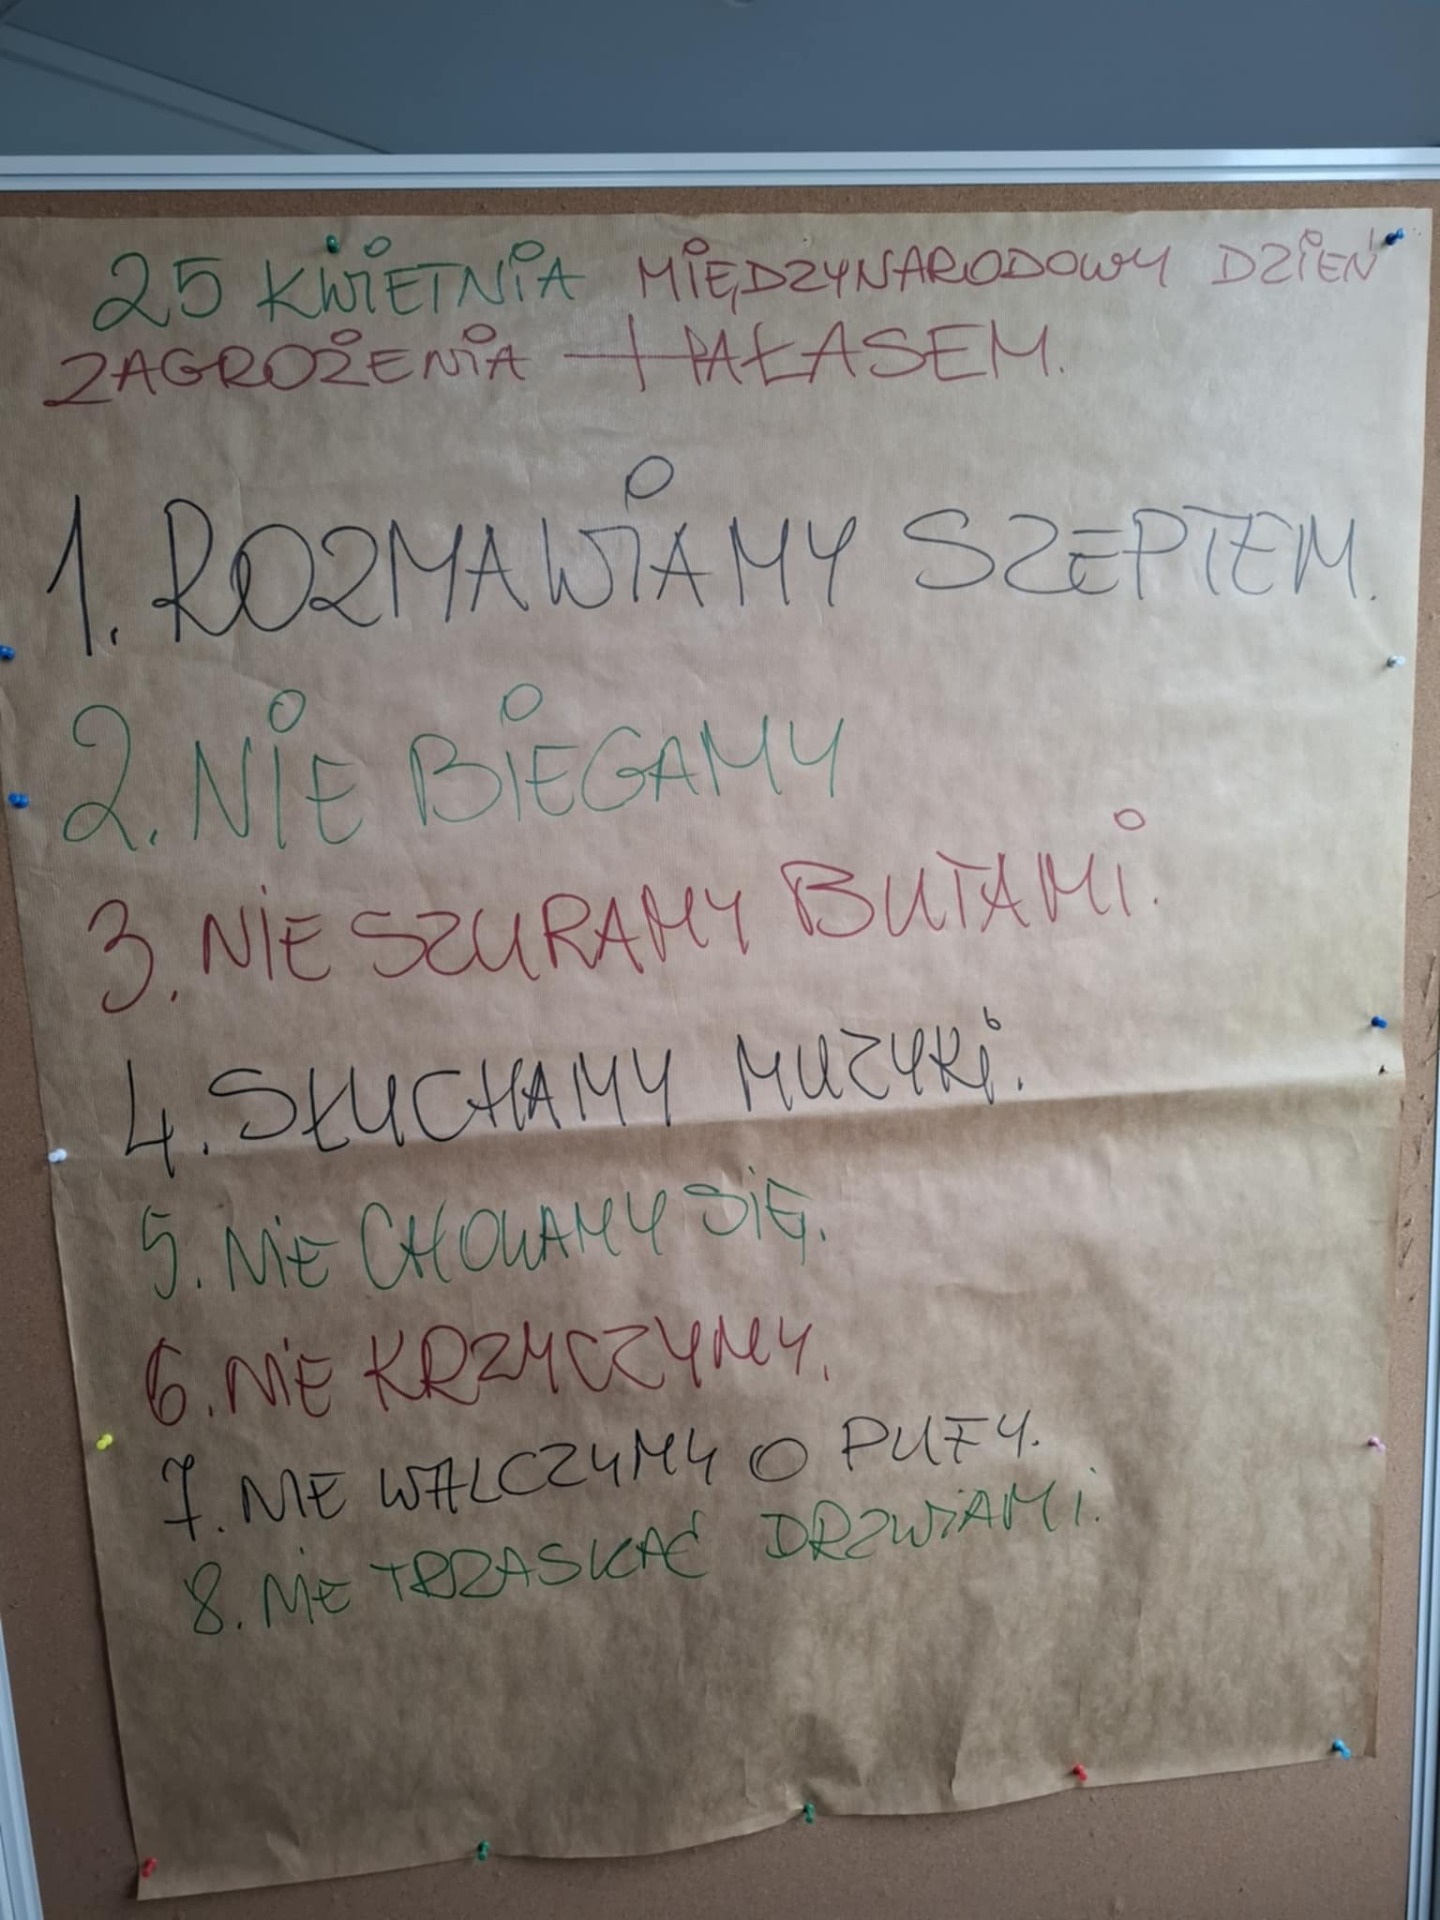 25 KWIETNIA MIĘDZYNARODOWY DZIEŃ
ZAGROŻENIA HAŁASEM.
1. ROZMAWIAMY SZEPTEM.
2. NIE BIEGAMY
3. NIE SZURAMY BUTAMI.
4. SŁUCHAMY MUZYKI.
5. NIE CHOWAMY SIĘ.
6. NIE KRZYCZYMY.
7. NIE WALCZYMY O PUFY.
8. NIE TRZASKAĆ DRZWIAMI.